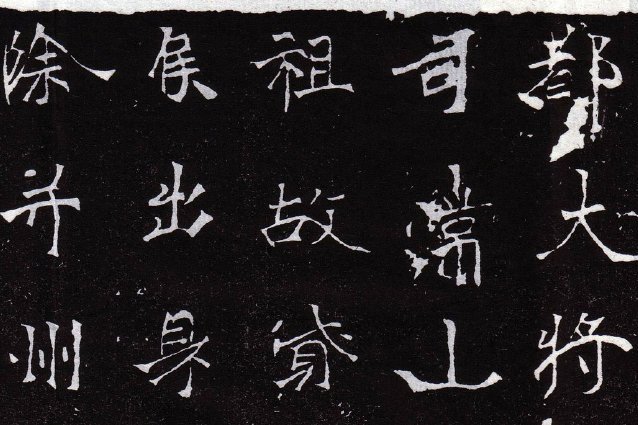 都大將
司常山
祖故貸
侯出身
除并州